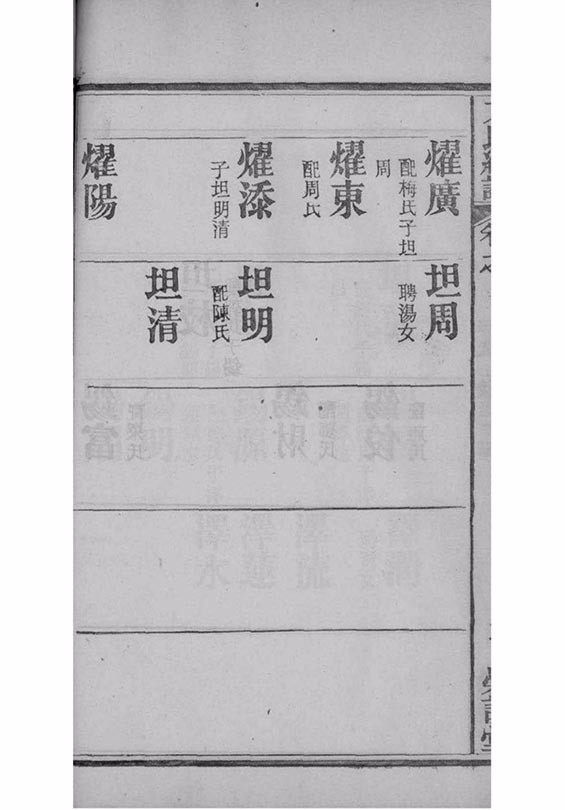 燿廣
配梅氏子坦
周
燿東
配周氏
燿添
子坦明清
燿陽
坦周
聘湯女
坦明
配陳氏
坦清